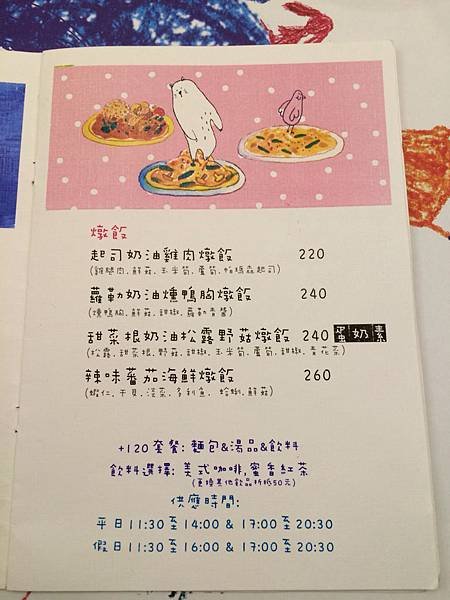 燉飯
起司奶油雞肉燉飯 220
(雞腿肉.鮮菇.玉米筍.蘆筍.帕瑪森起司)
蘿勒奶油燻鴨胸燉飯 240
(燻鴨胸.鮮菇.甜椒.蘿勒青醬)
甜菜根奶油松露野菇燉飯 240 蛋 奶 素
(松露.甜菜根.野菇.甜椒.玉米筍.蘆筍.甜椒.青花菜)
辣味蕃茄海鮮燉飯 260
(蝦仁.干貝.淡菜.多利魚. 蛤蜊.鮮菇)
+120套餐: 麵包&湯品&飲料
飲料選擇: 美式咖啡,蜜香紅茶
(更換其他飲品折抵50元)
供應時間:
平日11:30至14:00 & 17:00至20:30
假日11:30至16:00 & 17:00至20:30